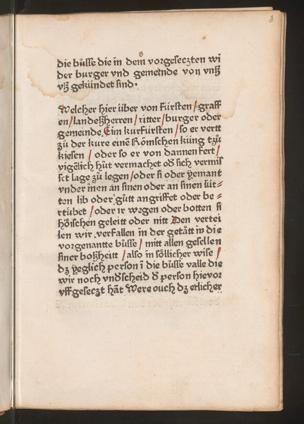 die büsse die in dem vorgesetzten wi
der burger vnd gemeinde von vnß
vß gekündet sind.
Welcher hier über von Fürsten / graff
en / landeßherren / ritter / burger oder
gemeinde Ein kurfürsten / so er vertt
zů der kure eins Römschen küng tzů
kiesen / oder so er von dannen fert /
vigēlich hůt vermachet oď sich vermis
set lage zů legen / oder si oder yemant
vnder inen an sinen oder an sinen lüt-
ten lib oder gůtt angriffet oder be-
trübet / oder ir wegen oder botten si
höischen geleitt oder nitt Den vertei
len wir verfallen in der getätt in die
vorgenantte büsse / mitt allen gesellen
siner boßheitt / also in söllicher wise /
dz yeglich person ī die büsse valle die
wir noch vndscheid ď person hievor
vff gesetzt hāt Were ouch dz etlicher